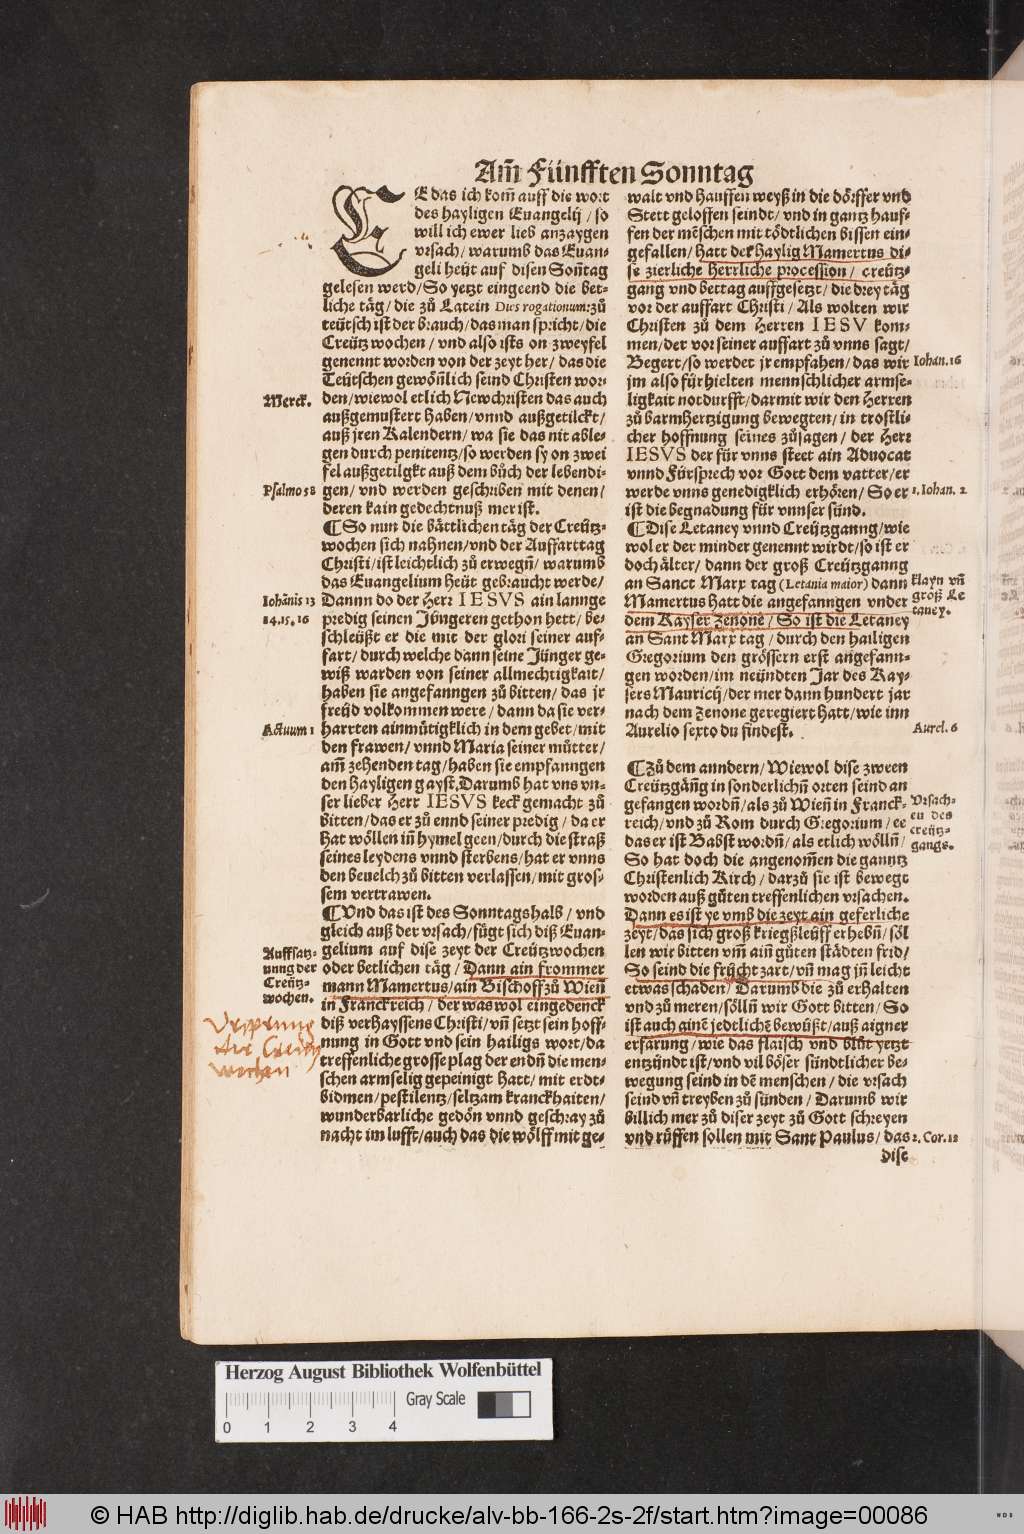 Am̃ Fünfften Sonntag
EE das ich kom̃ auff die wort
des hayligen Euangelij / so
will ich ewer lieb anzaygen
vrsach / warumb das Euan-
geli heüt auf disen Son̄tag
gelesen werd / So yetzt eingeend die bet-
liche täg / die zů Latein Dies rogationum: zů
teütsch ist der brauch / das man spricht / die
Creützwochen / vnd also ists on zweyfel
genennt worden von der zeyt her / das die
Teütschen gewön̄lich seind Christen wor-
Merck. den / wiewol etlich Newchristen das auch
außgemustert haben / vnnd außgetilckt /
auß jren Kalendern / wa sie das nit able-
gen durch penitentz / so werden sy on zwei
fel außgetilgkt auß dem bůch der lebendi-
Psalmo 58 gen / vnd werden geschriben mit denen /
deren kain gedechtnuß mer ist.
¶ So nun die båttlichen täg der Creütz-
wochen sich nahnen / vnd der Auffarttag
Christi / ist leichtlich zů erwegn̄ / warumb
das Euangelium heüt gebraucht werde /
Iohānis 13 Dannn do der Herr IESVS ain lannge
14.15.16 predig seinen Jüngeren gethon hett / be-
schleüßt er die mit der glori seiner auf-
fart / durch welche dann seine Jünger ge-
wiß warden von seiner allmechtigkait /
haben sie angefanngen zů bitten / das jr
freüd volkommen were / dann da sie ver-
Actuum 1 harrten ainmütigklich in dem gebet / mit
den frawen / vnnd Maria seiner můtter /
am̃ zehenden tag / haben sie empfanngen
den hayligen gayst. Darumb hat vns vn-
ser lieber Herr IESVS keck gemacht zů
bitten / das er zů ennd seiner predig / da er
hat wöllen in̄ hymel geen / durch die straß
seines leydens vnnd sterbens / hat er vnns
den beuelch zů bitten verlassen / mit gros-
sem vertrawen.
¶ Vnd das ist des Sonntags halb / vnd
gleich auß der vrsach / fügt sich diß Euan-
Auffsatz- gelium auf dise zeyt der Creützwochen
nung der oder betlichen täg / Dann ain frommer
Creütz- mann Mamertus / ain Bischoff zů Wien̄
wochen. in Franckreich / der was wol eingedenck
Vrsprung diß verhayssens Christi / vn̄ setzt sein hoff-
der Creutz nung in Gott vnd sein hailigs wort / da
wochen treffenliche grosse plag der endn̄ die men-
schen armselig gepeinigt hatt / mit erdt-
bidmen / pestilentz / seltzam kranckhaiten /
wunderbarliche gedön vnnd geschray zů
nacht im lufft / auch das die wölff mit ge-
walt vnd hauffen weyß in die dörffer vnd
Stett geloffen seindt / vnd in gantz hauf-
fen der mēschen mit tödtlichen bissen ein-
gefallen / hatt der haylig Mamertus di-
se zierliche herrliche procession / creütz-
gang vnd bettag auffgesetzt / die drey täg
vor der auffart Christi / Als wolten wir
Christen zů dem Herren IESV kom-
men / der vor seiner auffart zů vnns sagt /
Begert / so werdet jr empfahen / das wir Iohan. 16
jm also fürhielten mennschlicher armse-
ligkait notdurfft / darmit wir den Herren
zů barmhertzigung bewegten / in trostli-
cher hoffnung seines zůsagen / der Herr
IESVS der für vnns steet ain Aduocat
vnnd Fürsprech vor Gott dem vatter / er
werde vnns genedigklich erhören / So er 1. Iohan. 2
ist die begnadung für vnnser sünd.
¶ Dise Letaney vnnd Creützganng / wie
wol er der minder genennt wirdt / so ist er
doch älter / dann der groß Creützganng
an Sanct Marx tag (Letania maior) dann klayn vn̄
Mamertus hatt die angefanngen vnder groß Le
dem Kayser Zenone / So ist die Letaney taney.
an Sant Marx tag / durch den hailigen
Gregorium den grössern erst angefann-
gen worden / im neündten Jar des Kay-
sers Mauricij / der mer dann hundert jar
nach dem Zenone geregiert hatt / wie inn
Aurelio sexto du findest. Aurel. 6
¶ Zů dem anndern / Wiewol dise zween
Creützgäng in sonderlichn̄ orten seind an
gefangen wordn̄ / als zů Wien̄ in Franck- Vrsach-
reich / vnd zů Rom durch Gregorium / ee en des
das er ist Babst wordn̄ / als etlich wölln̄ / creütz-
So hat doch die angenom̄en die ganntz gangs.
Christenlich Kirch / darzů sie ist bewegt
worden auß gůten treffenlichen vrsachen.
Dann es ist ye vmb die zeyt ain geferliche
zeyt / das sich groß kriegßleüff erhebn̄ / söl
len wir bitten vm̄ ain̄ gůten städten frid /
So seind die frücht zart / vn̄ mag jn leicht
etwas schaden / Darumb die zů erhalten
vnd zů meren / sölln̄ wir Gott bitten / So
ist auch ainē jedtlichē bewüßt / auß aigner
erfarung / wie das flaisch vnd blůt yetzt
entzündt ist / vnd vil böser sündtlicher be-
wegung seind in dē menschen / die vrsach
seind vn̄ treyben zů sünden / Darumb wir
billich mer zů diser zeyt zů Gott schreyen
vnd rüffen sollen mit Sant Paulus / das 2. Cor. 12
dise
Herzog August Bibliothek Wolfenbüttel
Gray Scale
0 1 2 3 4
© HAB http://diglib.hab.de/drucke/alv-bb-166-2s-2f/start.htm?image=00086